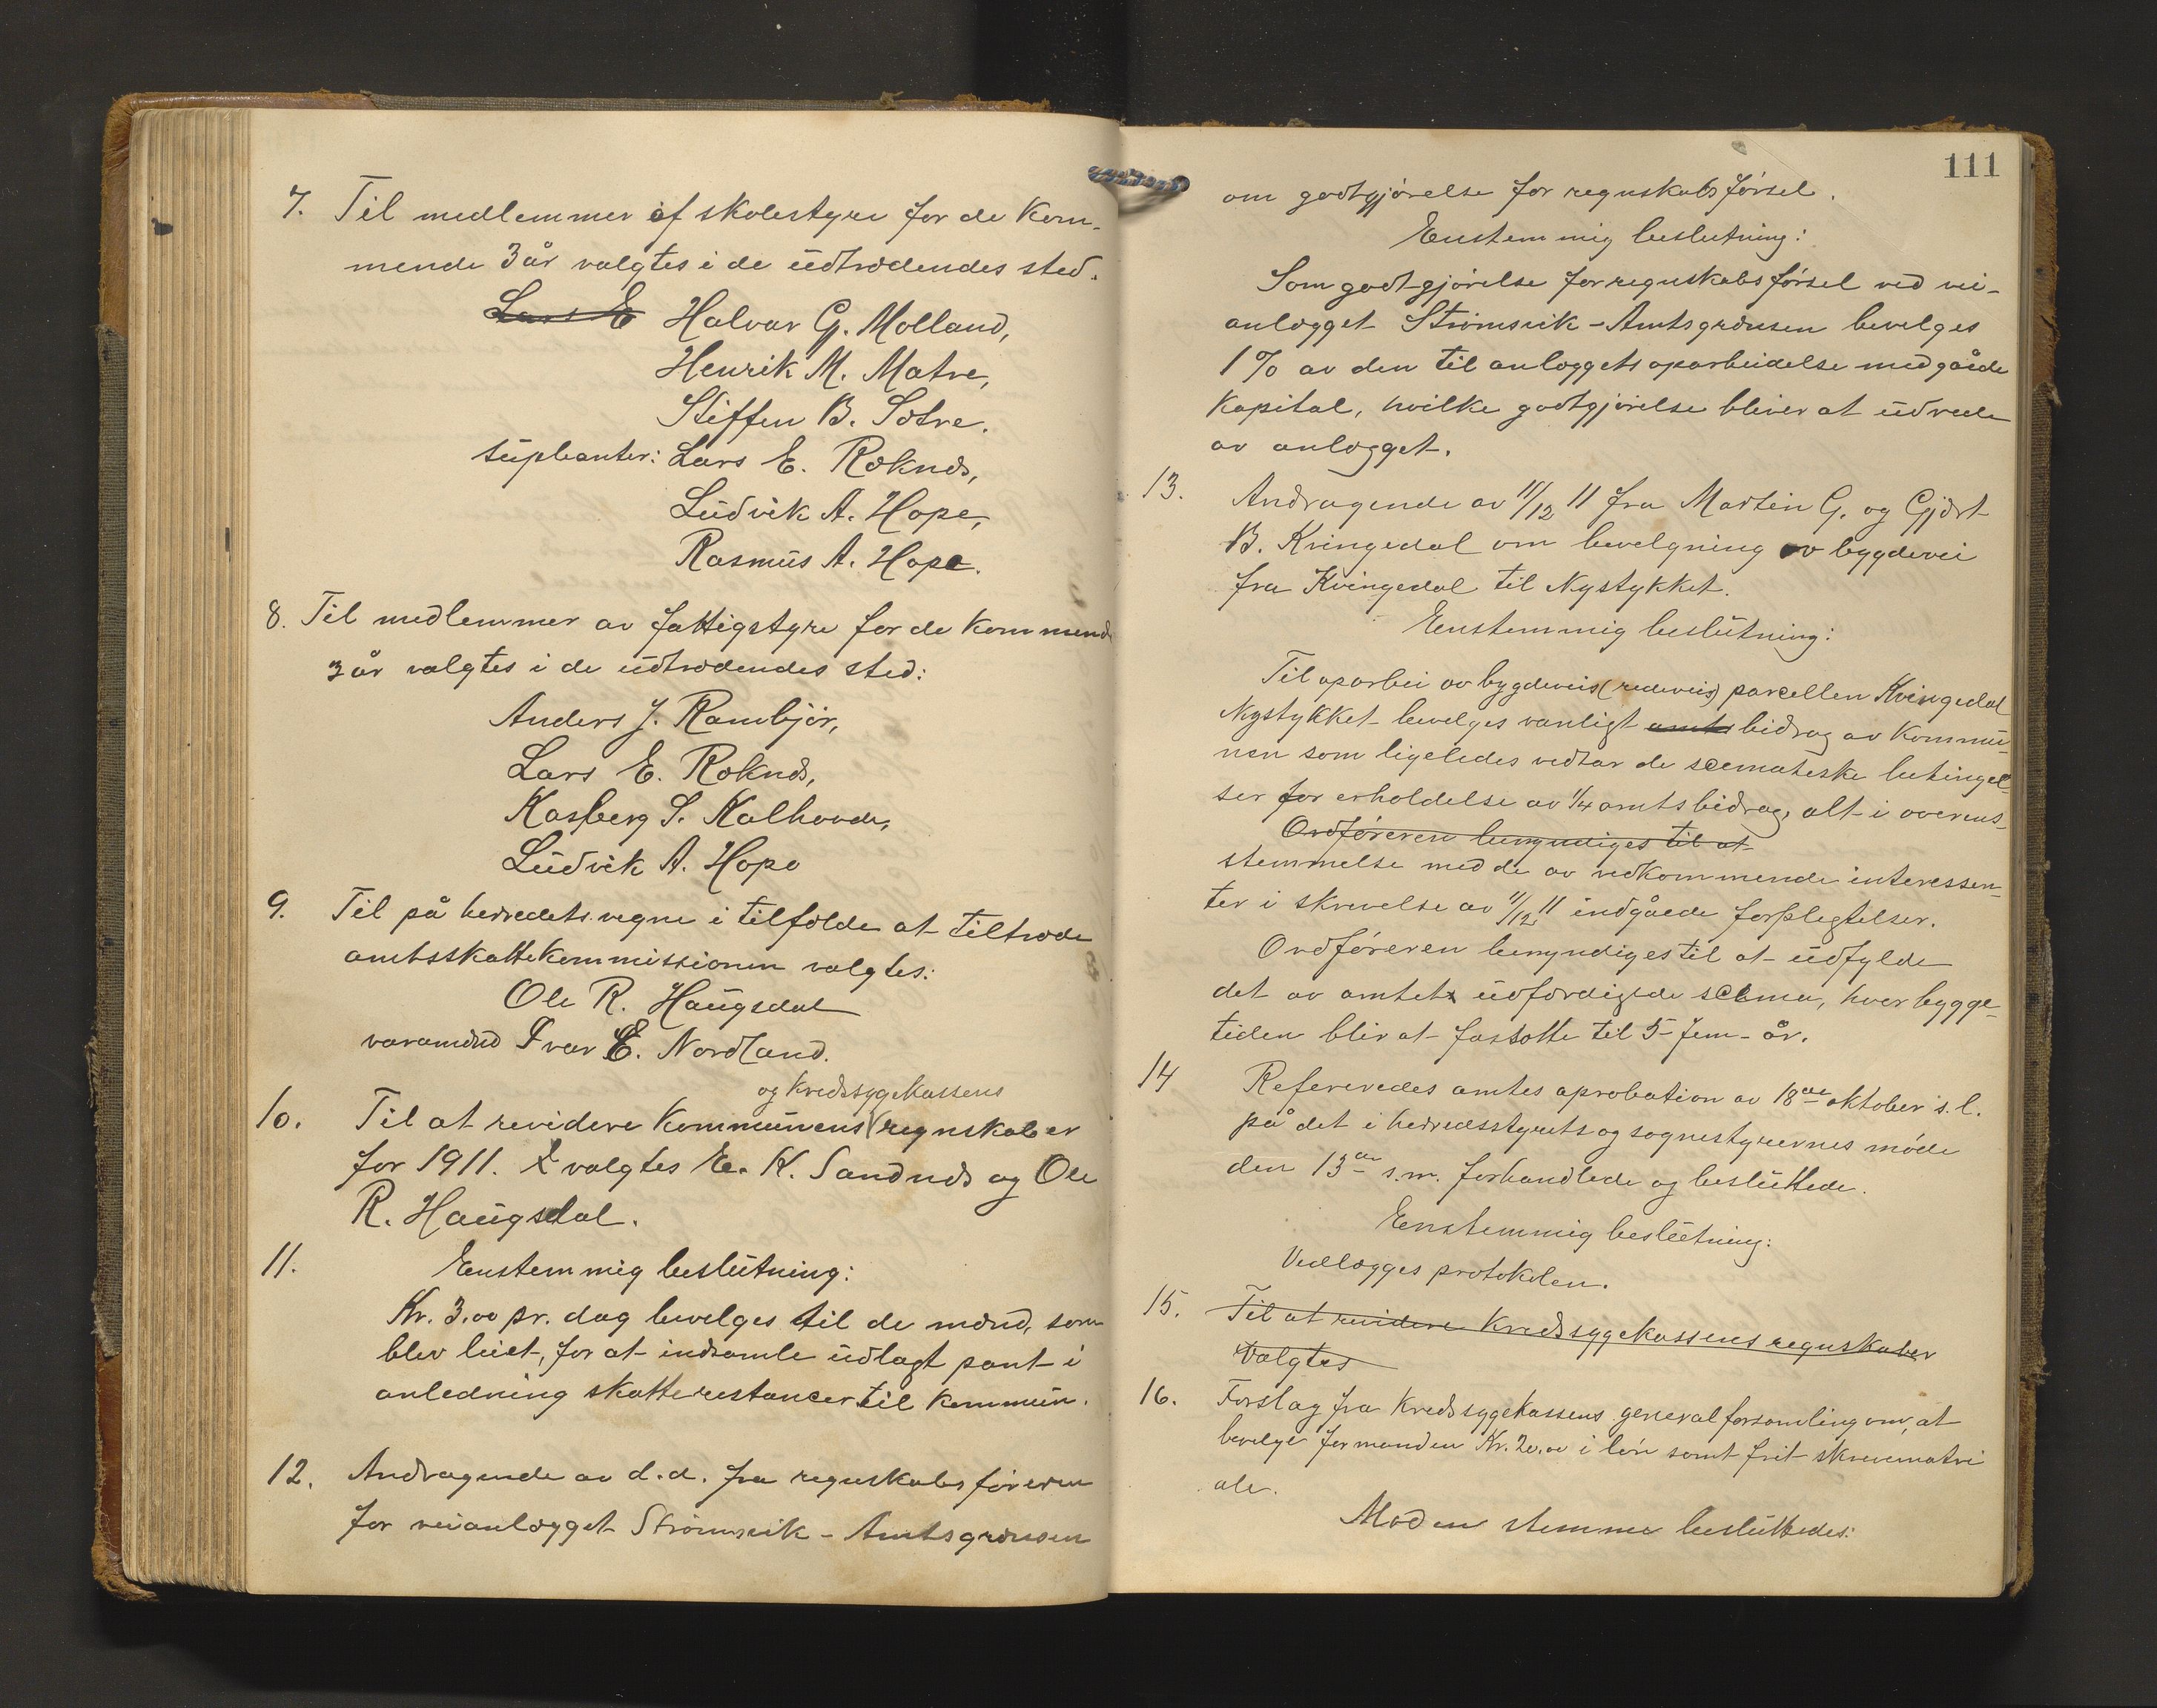 7. Til medlemmer af skolestyre for de kom-
mende 3 år valgtes i de udtrædendes sted.
Lars E Halvar G. Molland,
Henrik M. Matre,
Steffen B. Sætre.
supleanter: Lars E. Røknæs,
Ludvik A. Hope,
Rasmus A. Hope.
8. Til medlemmer av fattigstyre for de kommende
3 år valgtes i de udtrædendes sted:
Anders J. Rambjør,
Lars E. Røknæs,
Kasberg S. Kalhovde,
Ludvik A. Hope
9. Til på herredets vegne i tilfælde at tiltræde
amtsskattekommissionen valgtes:
Ole R. Haugsdal
varamænd Ivar E. Nordland.
og kredssygekassens
10. Til at revidere kommunens regnskaber
for 1911. valgtes E. K. Sandnæs og Ole
R. Haugsdal.
11. Enstemmig beslutning:
Kr. 3,00 pr. dag bevelges til de mænd, som
blev leiet, for at indsamle udlagt pant i
anledning skatterestancer til kommun.
12. Andragende av d.d. fra regnskabsføreren
for veianlægget Strømsvik - Amtsgrænsen
111
om godtgjørelse for regnskabsførsel.
Enstemmig beslutning:
Som godtgjørelse for regnskabsførsel ved vei-
anlægget Strømsvik - Amtsgrænsen bevelges
1 % av den til anlæggets oparbeidelse medgåede
kapital, hvilke godtgjørelse bliver at udrede
av anlægget.
13. Andragende av 11/12 11 fra Martin G. og Gjært
B. Kvingedal om bevelgning av bygdevei
fra Kvingedal til Nystykket.
Enstemmig beslutning:
Til oparbei av bygdeveis (redeveis) parcellen Kvingedal
Nystykket bevelges vanligt amts bidrag av kommu-
nen som ligeledes vedtar de scematiske betingel-
ser for erholdelse av 1/4 amtsbidrag, alt i overens-
Ordføreren bemyndiges til at
stemmelse med de av vedkommende interessen-
ter i skrivelse av 11/12 11 indgåede forplegtelser.
Ordføreren bemyndiges til at udfylde
det av amtet udfærdigede scema, hvor bygge-
tiden blir at fastsætte til 5 - fem - år.
14 Refereredes amtes aprobation av 18de oktober s.l.
på det i herredsstyrets og sognestyrernes møde
den 13de s.m. forhandlede og besluttede.
Enstemmig beslutning:
Vedlægges protokolen.
15. Til at revidere kredssygekassens regnskaber
valgtes
16. Forslag fra kredssygekassens generalforsamling om, at
bevelge formanden Kr. 20,00 i løn samt frit skrivematri
ale.
Mod en stemme besluttedes: